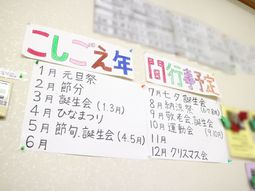 こしごえ年間行事予定
1月 元旦祭
2月 節分
3月 誕生会(1.3月)
4月 ひなまつり
5月 節句.誕生会(4.5月)
6月
7月 七夕 誕生会
8月 納涼祭
9月 敬老会.誕生会
10月 運動会
11月
12月 クリスマス会